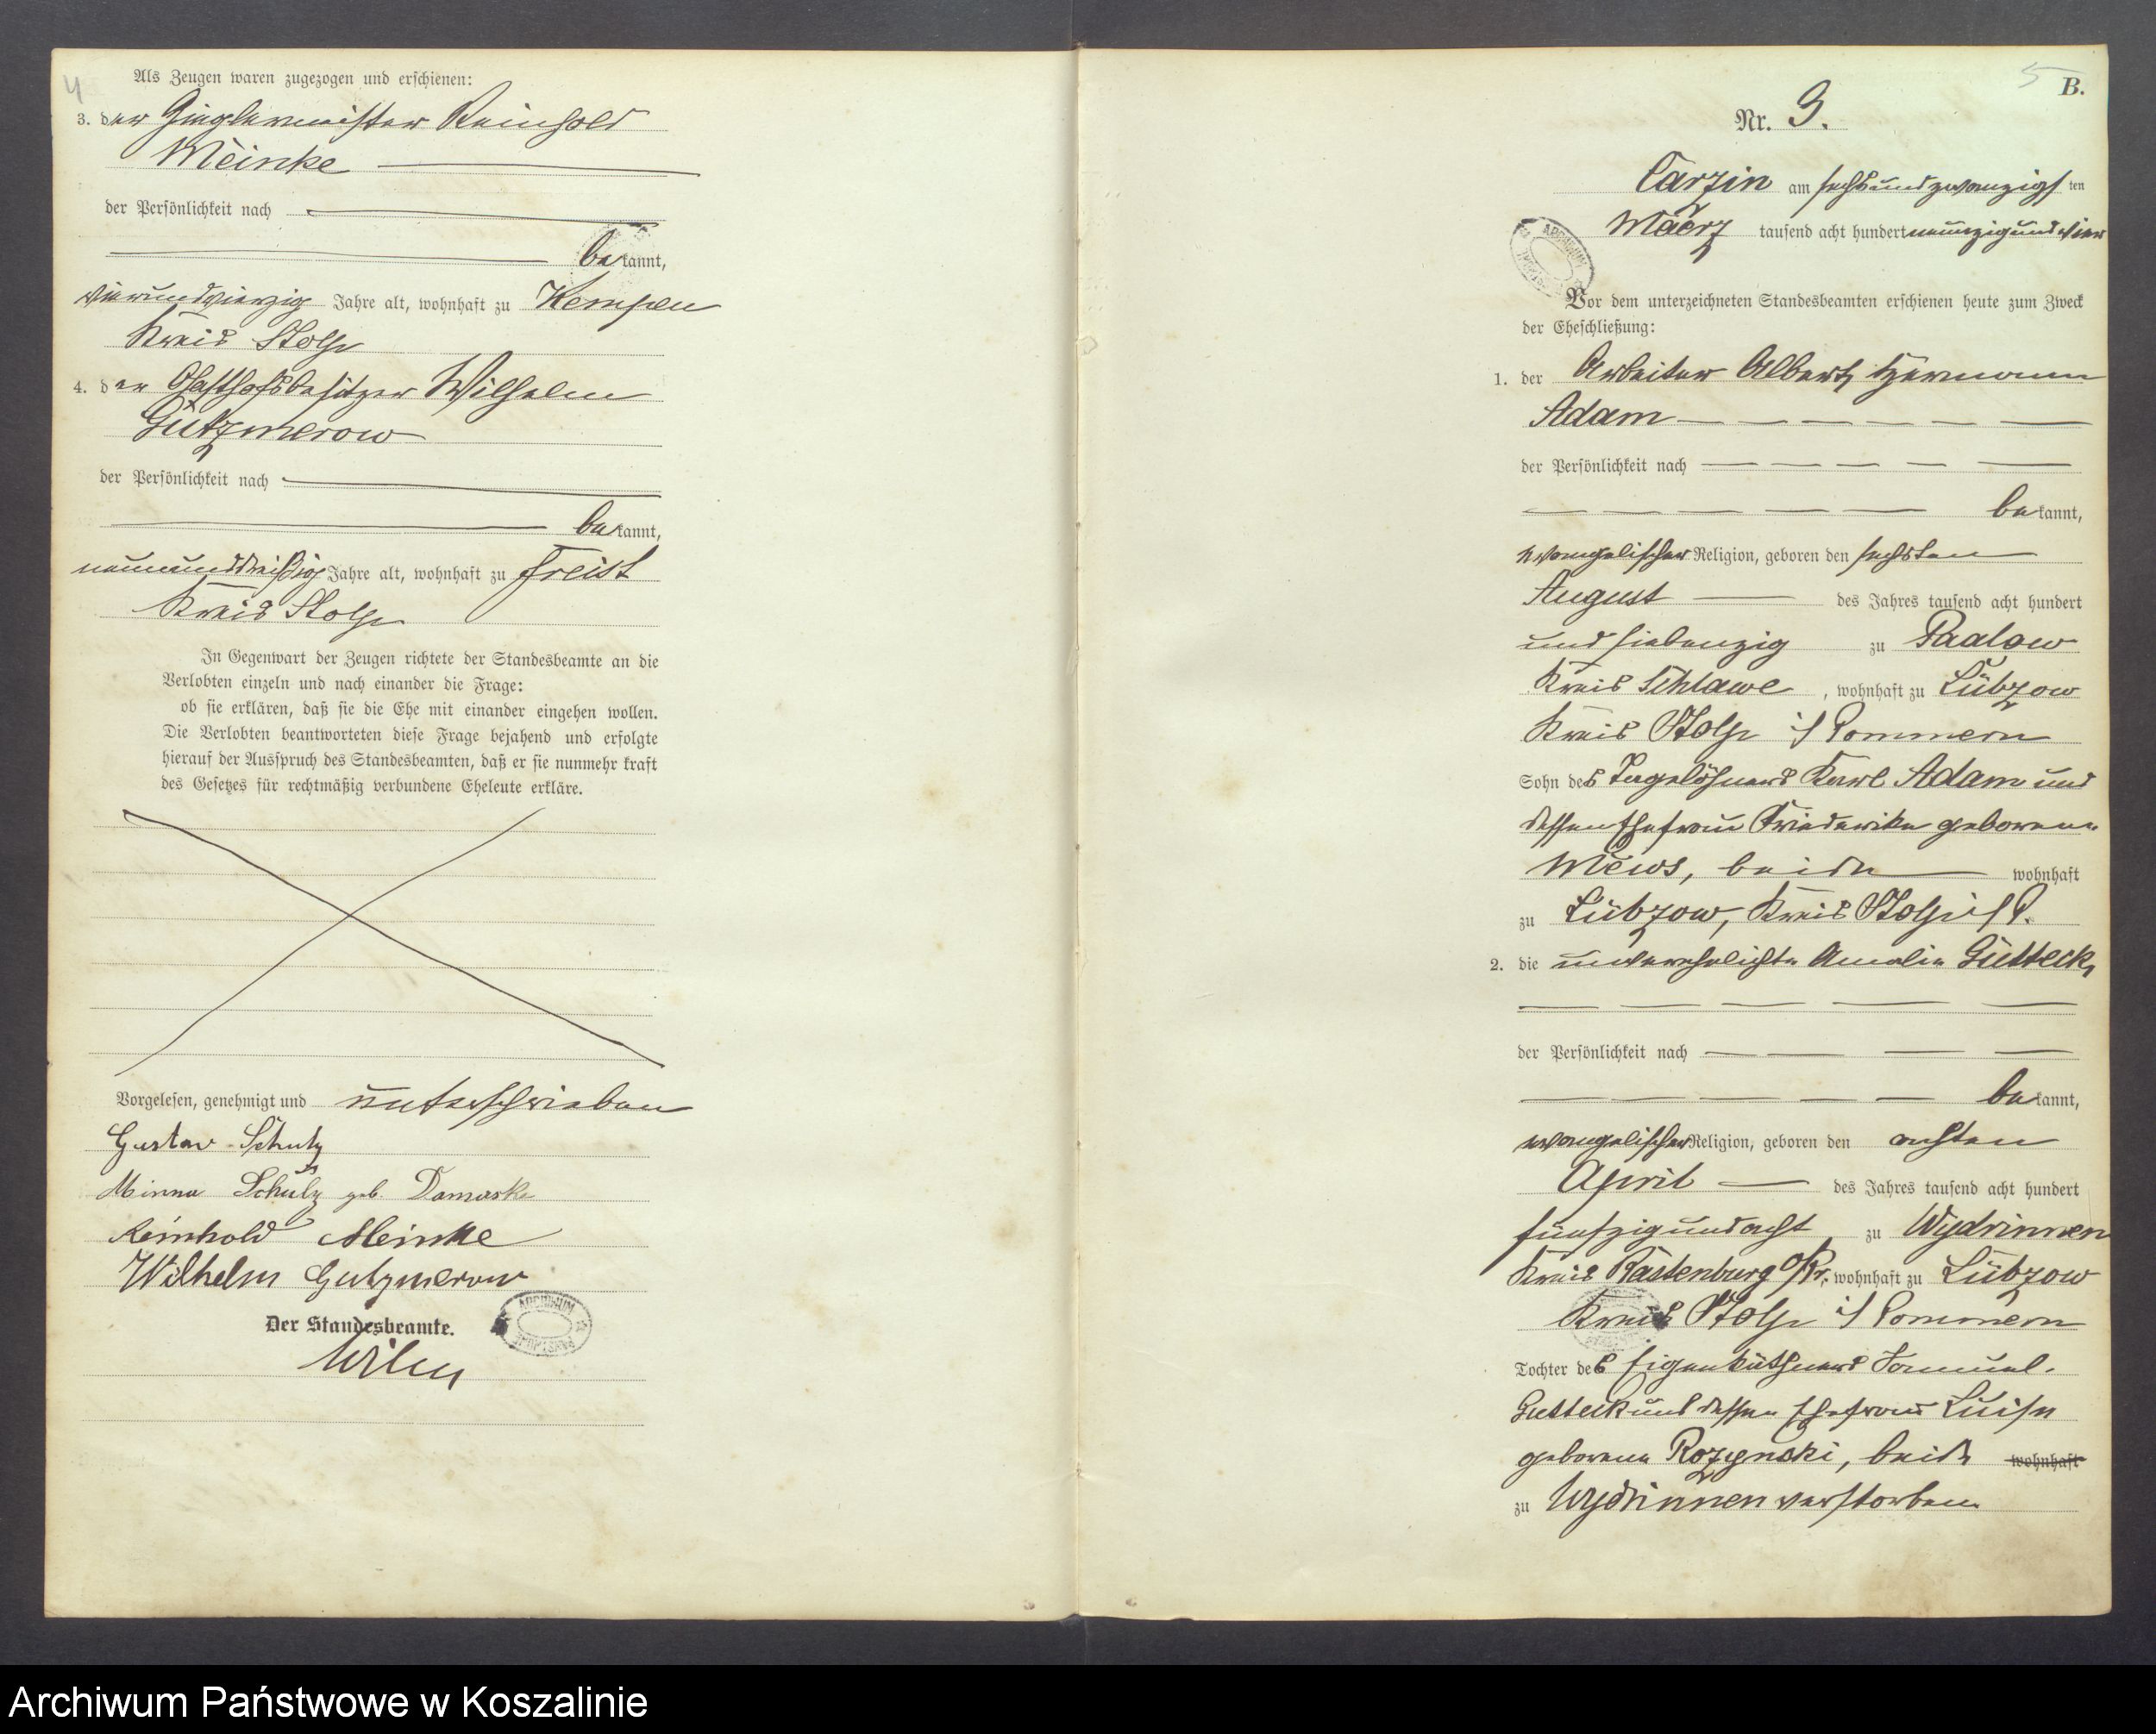 4
Als Zeugen waren zugezogen und erschienen:
3. der Zieglermeister Reinhold
Meinke
der Persönlichkeit nach
bekannt,
vierundvierzig Jahre alt, wohnhaft zu Kempen
Kreis Stolp
4. der Gasthofsbesitzer Wilhelm
Gutzmerow
der Persönlichkeit nach
bekannt,
neununddreißig Jahre alt, wohnhaft zu Freist
Kreis Stolp
In Gegenwart der Zeugen richtete der Standesbeamte an die
Verlobten einzeln und nach einander die Frage:
ob sie erklären, daß sie die Ehe mit einander eingehen wollen.
Die Verlobten beantworteten diese Frage bejahend und erfolgte
hierauf der Ausspruch des Standesbeamten, daß er sie nunmehr kraft
des Gesetzes für rechtmäßig verbundene Eheleute erkläre.
Vorgelesen, genehmigt und unterschrieben
Gustav Schulz
Minna Schulz geb. Damaske
Reinhold Meinke
Wilhelm Gutzmerow
Der Standesbeamte.
5
B.
Nr. 3.
Carzin am sechsundzwanzigsten
Maerz tausend acht hundert neunzigundvier
Vor dem unterzeichneten Standesbeamten erschienen heute zum Zweck
der Eheschließung:
1. der Arbeiter Albert Hermann
Adam
der Persönlichkeit nach
bekannt,
evangelischer Religion, geboren den sechsten
August des Jahres tausend acht hundert
und siebenzig zu Paalow
Kreis Schlawe, wohnhaft zu Lübzow
Kreis Stolp i/ Pommern
Sohn des Tagelöhners Karl Adam und
dessen Ehefrau Friederike geborene
Mews, beide wohnhaft
zu Lübzow, Kreis Stolp i/P.
2. die unverehelichte Amalie Gutteck,
der Persönlichkeit nach
bekannt,
evangelischer Religion, geboren den achten
April des Jahres tausend acht hundert
fünfzigundacht zu Wydrinnen
Kreis Rastenburg O/Pr. wohnhaft zu Lübzow
Kreis Stolp i/ Pommern
Tochter des Eigenkäthners Samuel
Gutteck und dessen Ehefrau Luise
geborene Rozynski, beide wohnhaft
zu Wydrinnen verstorben
Archiwum Państwowe w Koszalinie